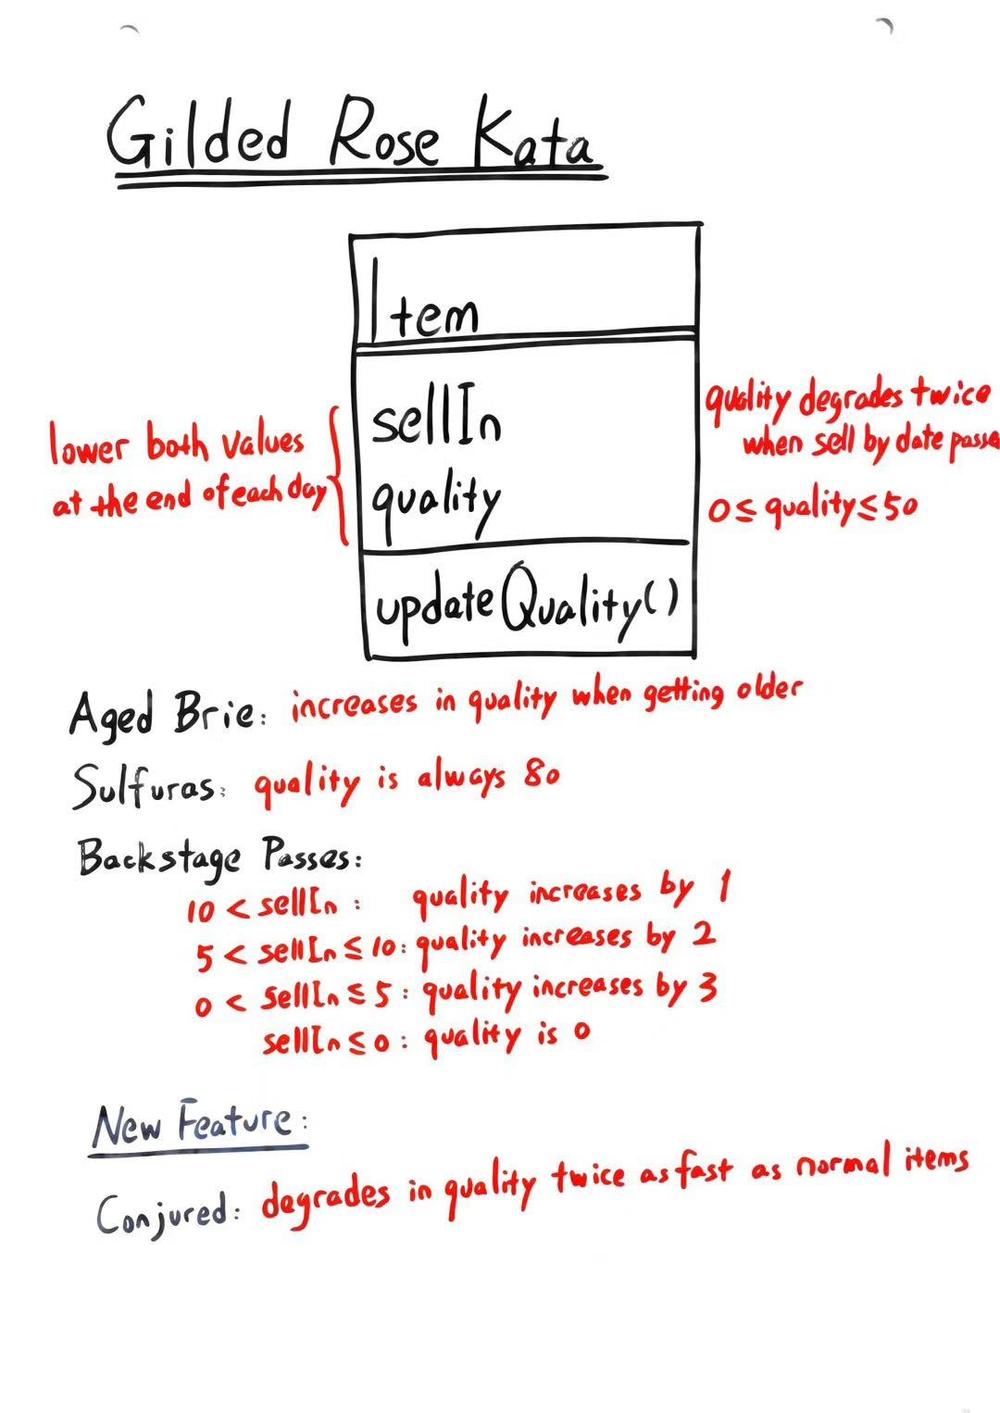 Gilded Rose Kata
Item
sellIn
quality
updateQuality()
lower both values
at the end of each day
quality degrades twice
when sell by date passe
0 ≤ quality ≤ 50
Aged Brie: increases in quality when getting older
Sulfuras: quality is always 80
Backstage Passes:
10 < sellIn : quality increases by 1
5 < sellIn ≤ 10: quality increases by 2
0 < sellIn ≤ 5: quality increases by 3
sellIn ≤ 0: quality is 0
New Feature:
Conjured: degrades in quality twice as fast as normal items